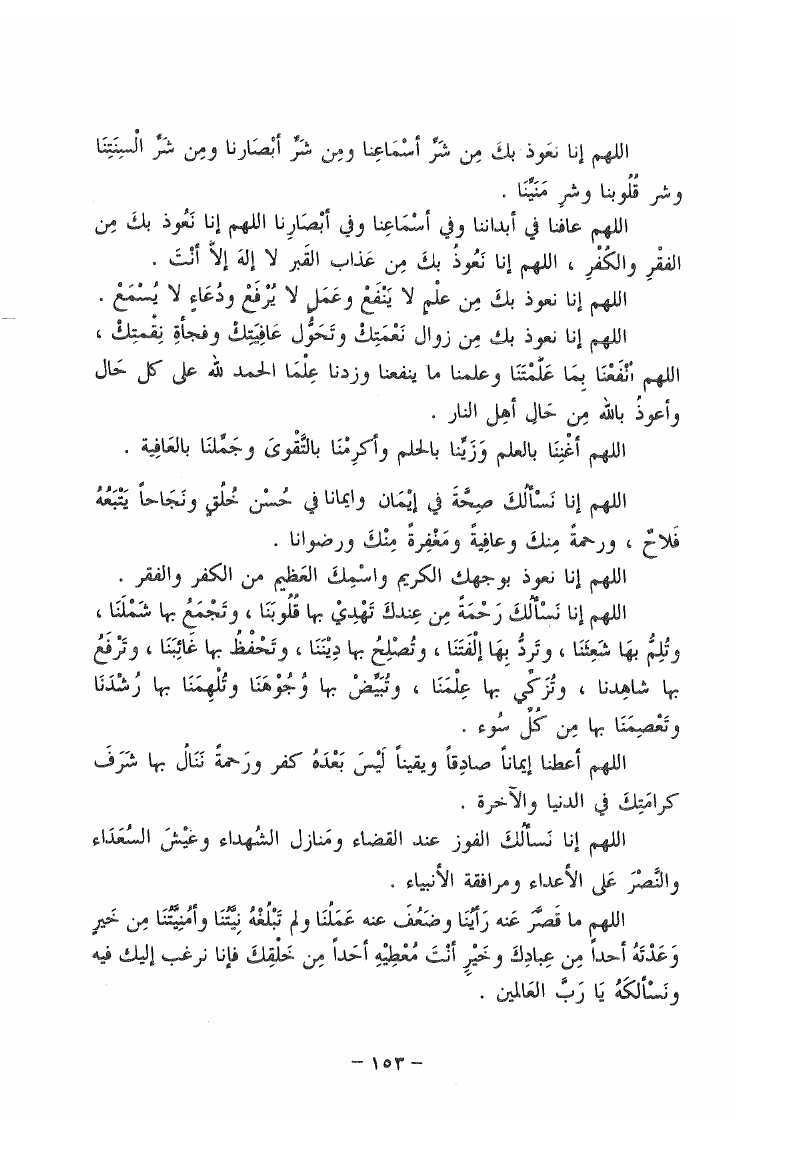 اللهم إنا نعَوذ بكَ مِن شَرِّ أسْمَاعِنا ومِن شَرِّ أبْصَارنا ومِن شَرِّ ألْسِنَتِنَا
وشر قُلُوبنا وشرِ مَنَيِّنَا .
اللهم عافنا في أبداننا وفي أسْمَاعِنا وفي أبْصَارِنا اللهم إنا نَعُوذ بكَ مِن
الفقْرِ والكُفْرِ ، اللهم إنا نَعُوذُ بكَ مِن عَذاب القَبر لا إلهَ إلاَّ أنْتَ .
اللهم إنا نعوذ بكَ مِن علْمٍ لا يَنْفَعْ وعَمَلٍ لا يُرْفَعْ ودُعَاءٍ لا يُسْمَعْ .
اللهم إنا نعوذ بك مِن زوال نَعْمَتِكْ وتَحَوُّل عَافِيَتِكْ وفجأةِ نِقْمتِكْ ،
اللهم أنْفَعْنَا بِمَا عَلَّمْتَنَا وعلمنا ما ينفعنا وزدنا عِلْمَا الحمد لله على كل حَال
وأعوذُ بالله مِن حَالِ أهِل النار .
اللهم أغْنِنَا بالعلم وَزَيِّنا بالحلم وأكرِمْنَا بالتَّقْوىَ وجَمِّلنَا بالعَافِية .
اللهم إنا نَسْألُكَ صِحَّةَ في إيْمَان وايمانا في حُسْن خُلُقٍ ونَجَاحاً يَتْبَعُهُ
فَلاحٌ ، ورحمةً مِنكَ وعافِيةً ومَغْفِرةً مِنْكَ ورضوانا .
اللهم إنا نعوذ بوجهك الكريم واسْمِكَ العَظِيم من الكفر والفقر .
اللهم إنا نَسْألُكَ رَحْمَةً مِن عِندكَ تَهْدِيْ بها قُلُوبَنَا ، وتَجْمَعُ بها شَمْلَنَا ،
وتُلِمُّ بهَا شَعِثَنَا ، وتَردُّ بِهَا إلْفَتَنَا ، وتُصْلِحُ بها دِيْنَنَا ، وتَحْفْظُ بها غَائِبَنَا ، وتَرْفَعُ
بها شاهِدنا ، وتُزَكّي بها عِلْمَنَا ، وتُبَيِّضْ بها وُجُوْهَنَا وتُلْهِمَنَا بها رُشْدَنَا
وتَعْصِمَنَا بها مِن كُلِّ سُوء .
اللهم أعطنا إيماناً صادِقاً ويقيناً لَيْسَ بَعْدَهُ كفر ورَحمةً نَنَالُ بها شَرَفَ
كرامَتِكَ في الدنيا والآخرة .
اللهم إنا نَسألُكَ الفوز عند القضاء ومَنازل الشُهداء وعَيْشَ السُعَدَاء
والنَّصْرَ عَلى الأعداء ومرافقة الأنبياء .
اللهم ما قَصَّرَ عَنه رَأيُنَا وضَعُفَ عنه عَمَلُنَا ولم تَبْلُغْهُ نِيَّتُنَا وأمْنِيَّتُنَا مِن خَيرٍ
وَعَدْتَهُ أحداً مِن عِبادِكَ وخَيْرٍ أنْتَ مُعْطِيْهِ أحَداً مِن خَلْقِكَ فإنا نرغب إليك فيه
ونَسْألُكَهُ يَا رَبَّ العَالمين .
– ١٥٣ –